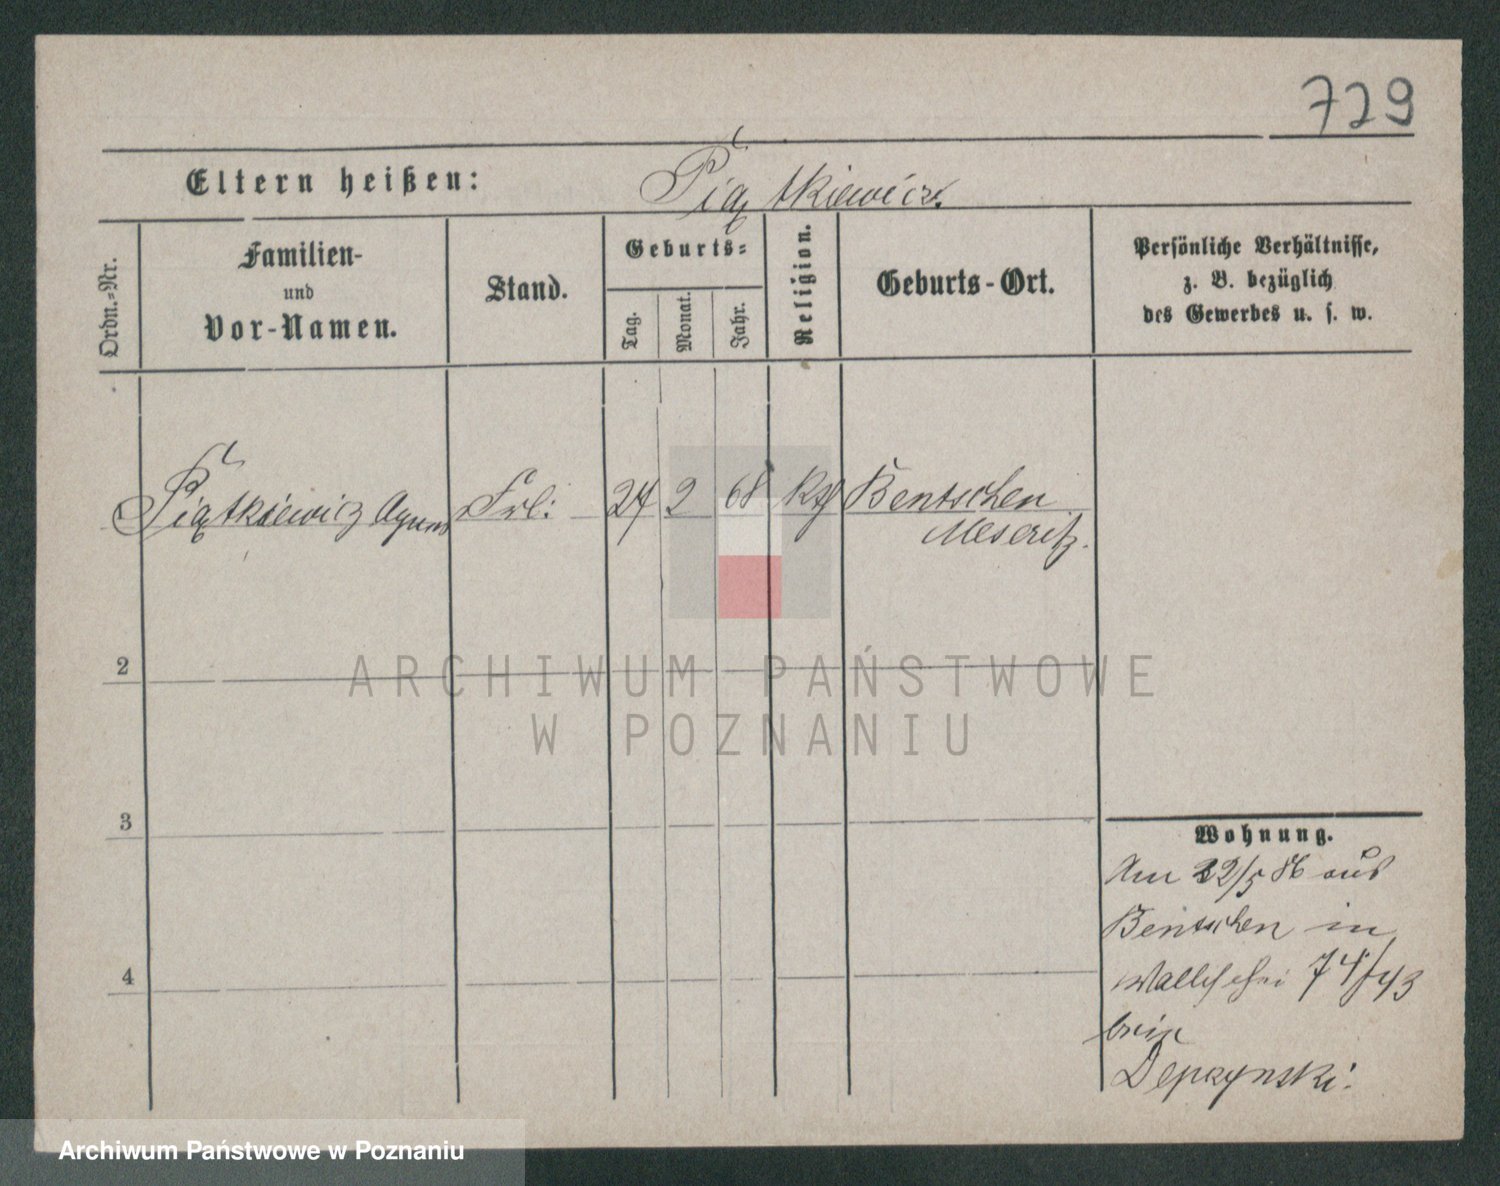 729
Eltern heißen: Piątkiewicz.
Ordn.-Nr.
Familien-
und
Vor-Namen.
Stand.
Geburts-
Tag.
Monat.
Jahr.
Religion.
Geburts-Ort.
Persönliche Verhältnisse,
z. B. bezüglich
des Gewerbes u. s. w.
Piątkiewicz Agnes Frl: 24 2 68 Kth Bentschen
Meseritz.
2
ARCHIWUM PAŃSTWOWE
W POZNANIU
3
Wohnung.
Am 22/5 86 aus
Bentschen in
Wallischei 74/43
beim
4
Depczynski.
Archiwum Państwowe w Poznaniu